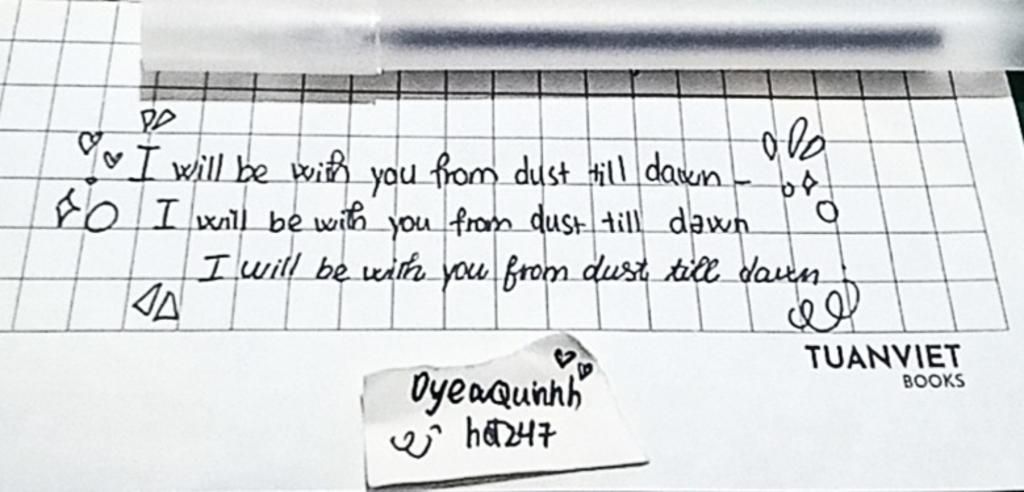 I will be with you from dust till dawn
I will be with you from dust till dawn
I will be with you from dust till dawn
TUANVIET
BOOKS
DyeaQuinhh
hd247